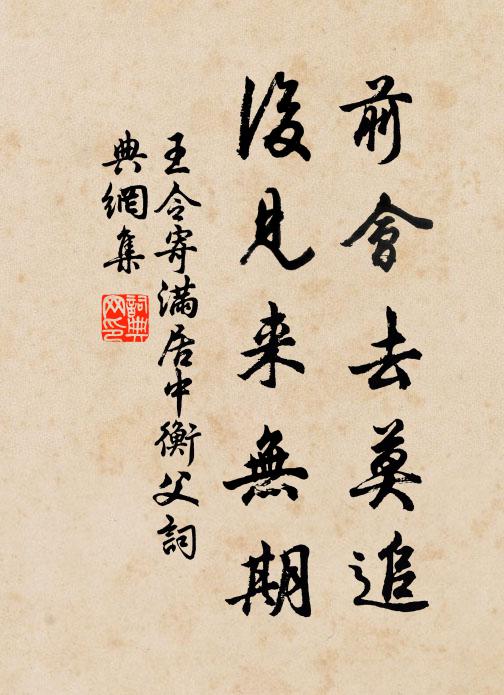 前會去莫追
後見来無期
王令寄滿居中衡父詞
典網集
詞典網印